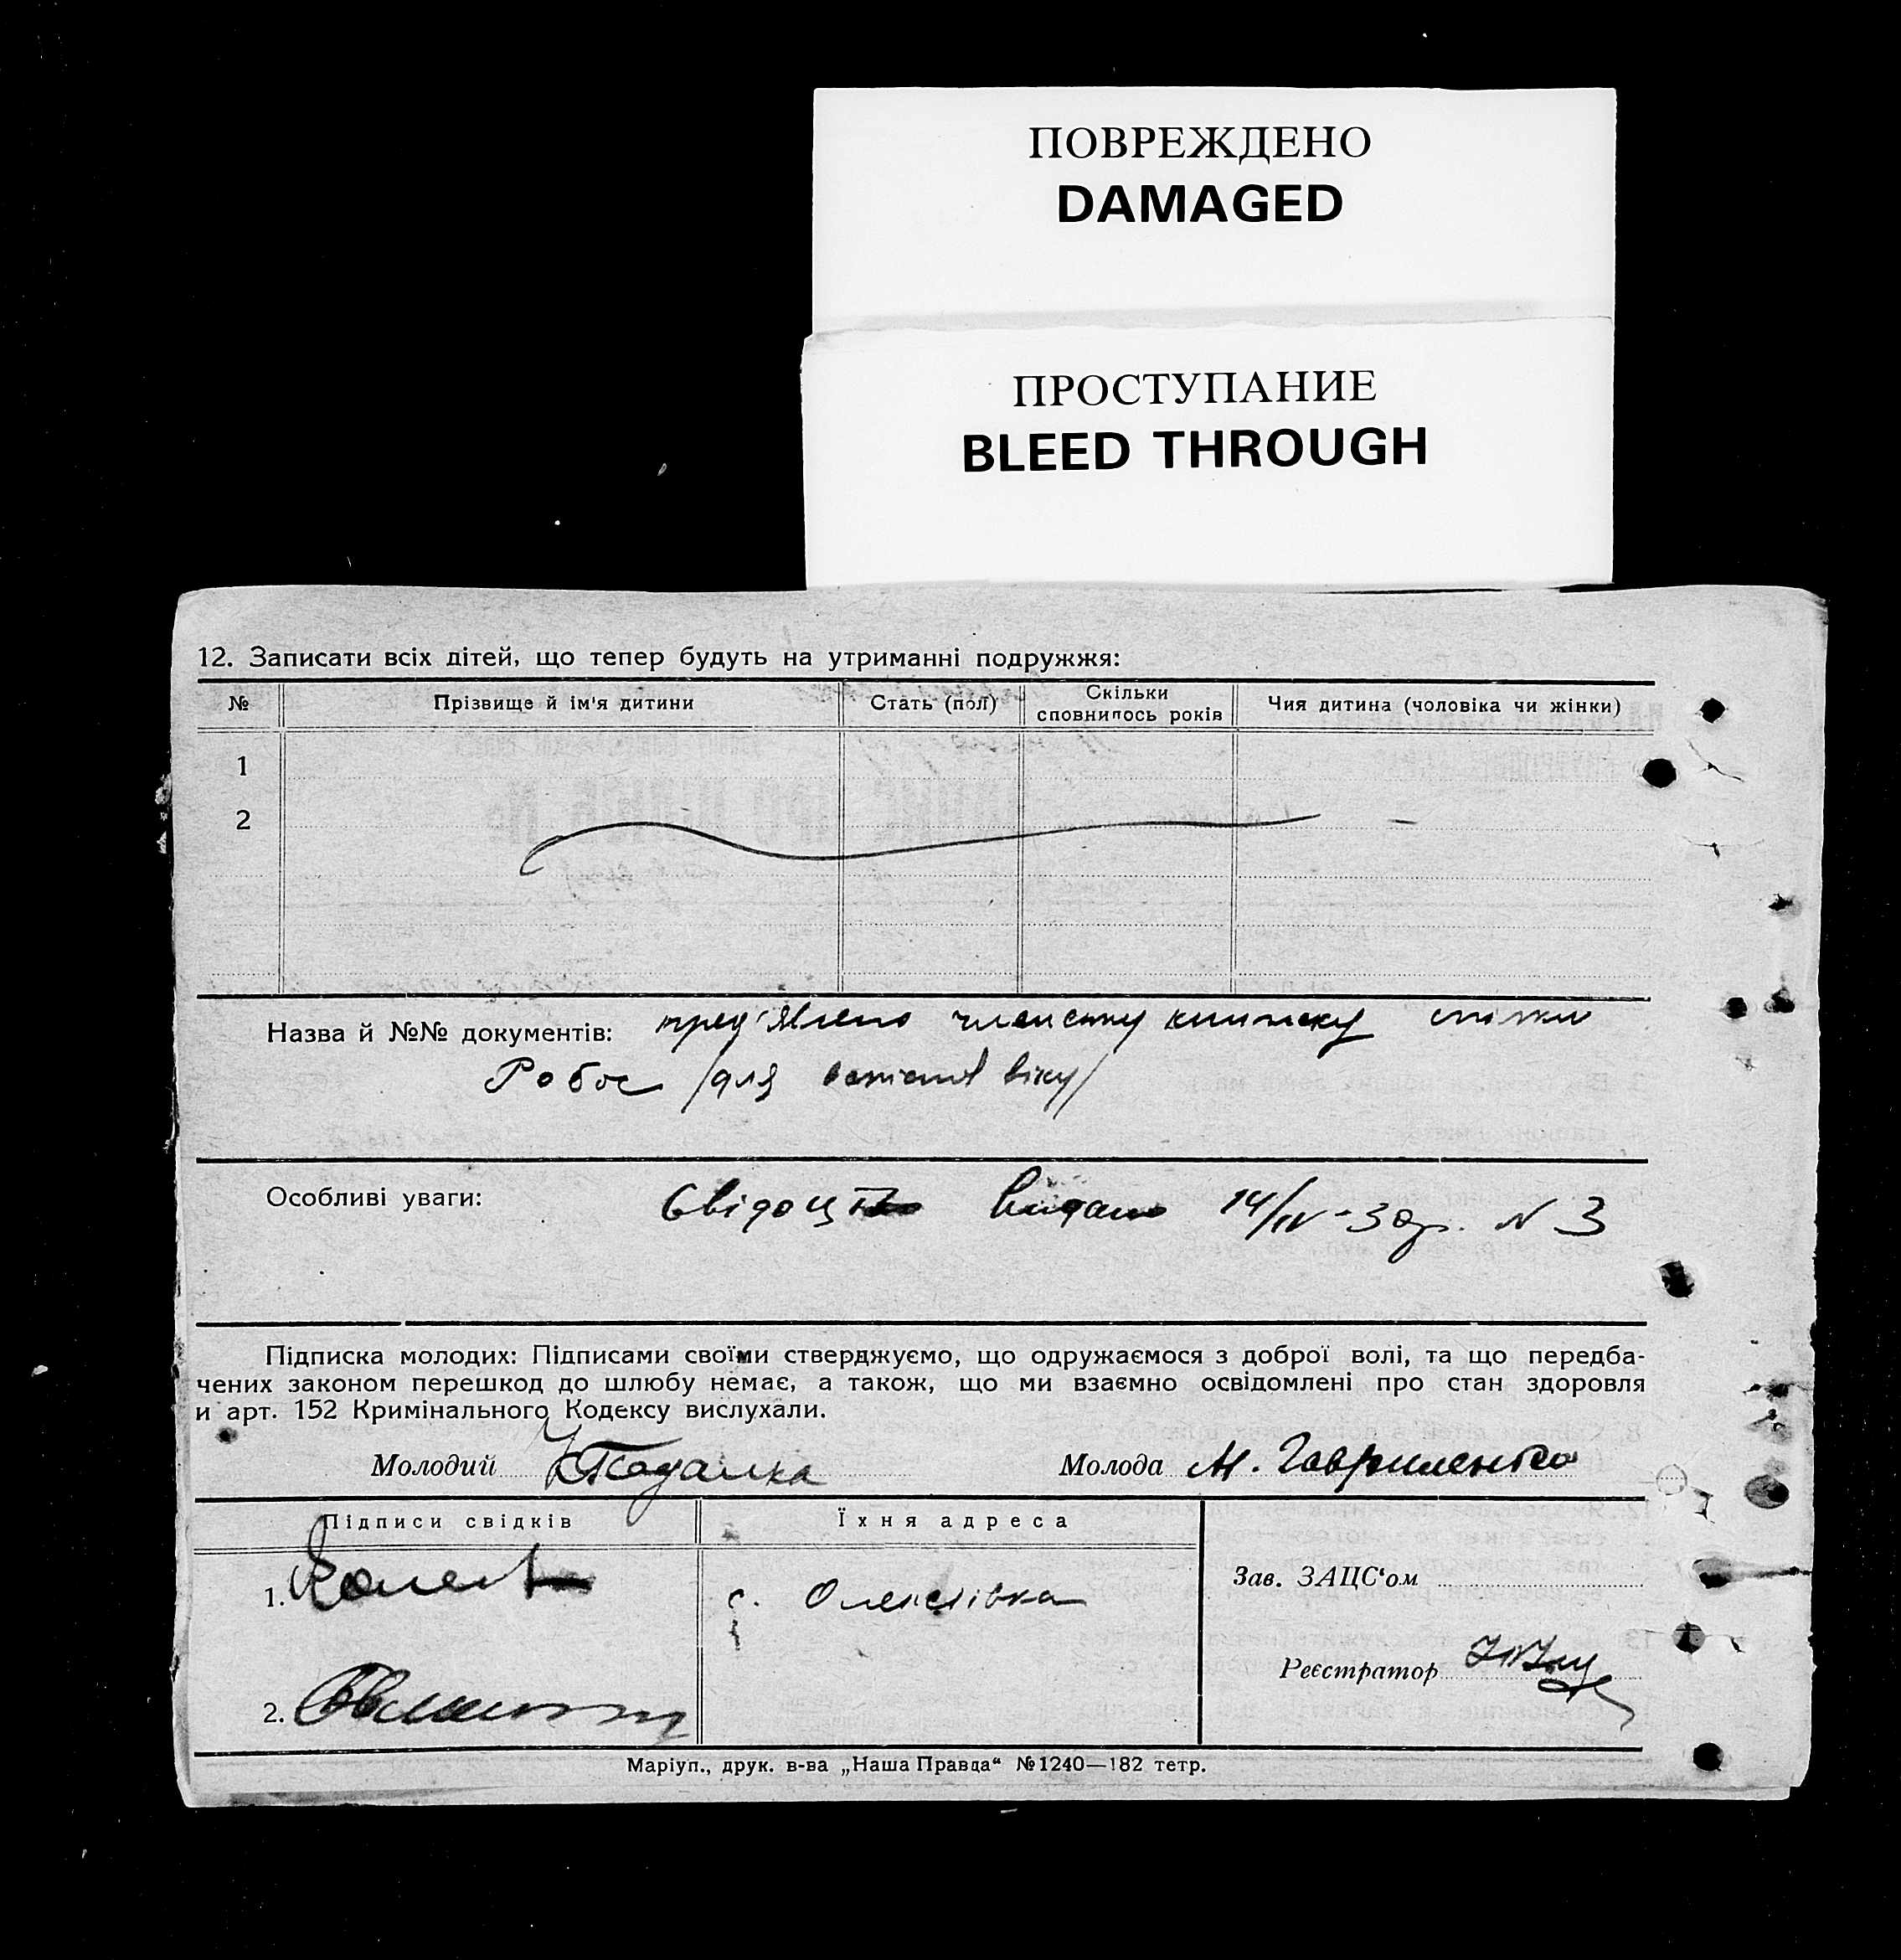 ПОВРЕЖДЕНО
DAMAGED
ПРОСТУПАНИЕ
BLEED THROUGH
12. Записати всіх дітей, що тепер будуть на утриманні подружжя:
№ Прізвище й ім'я дитини Стать (пол) Скільки сповнилось років Чия дитина (чоловіка чи жінки)
1
2
Назва й №№ документів: пред'явлено членську книжку спілки
Робос /для віку/
Особливі уваги: Свідоцтво видано 14/IV-30р. N 3
Підписка молодих: Підписами своїми стверджуємо, що одружаємося з доброї волі, та що передба-
чених законом перешкод до шлюбу немає, а також, що ми взаємно освідомлені про стан здоровля
и арт. 152 Кримінального Кодексу вислухали.
Молодий Молода М. Гавриленко
Підписи свідків Їхня адреса
Зав. ЗАЦС'ом
1. с. Олексіівка
Реєстратор
2.
Маріуп., друк. в-ва „Наша Правда“ №1240—182 тетр.